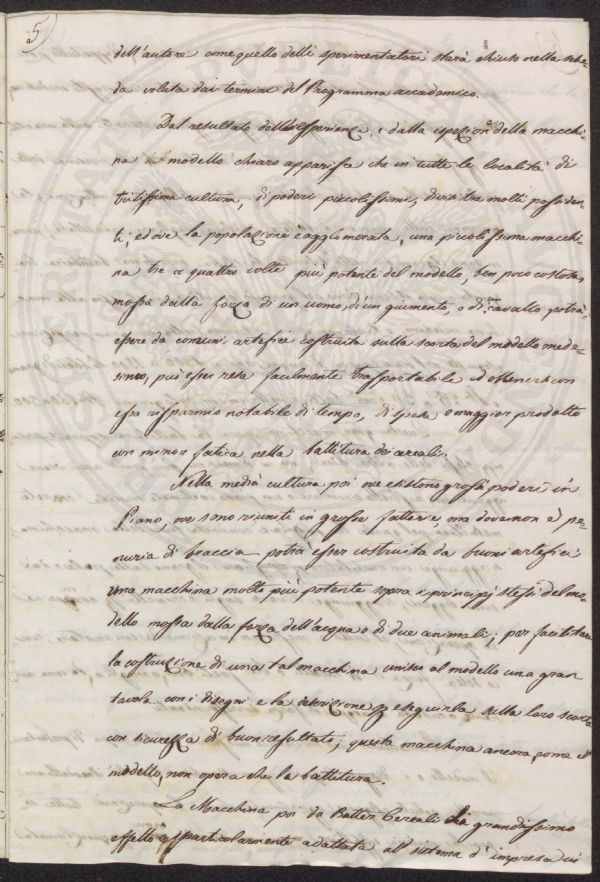 5
dell'autore come quello delli sperimentatori starà chiuso nella sche-
da voluta dai termini del Programma accademico.
Dal resultato dell'Esperienza, e dalla ispezione della macchi-
na in modello chiaro apparisce che in tutte le località di
trittissima cultura, di poderi piccolissimi, divisi tra molti possiden-
ti, ed ove la popolazione è agglomerata, una piccolissima macchi-
na tre o quattro volte più potente del modello, ben poco costosa,
mossa dalla forza di un uomo, di un giumento, o di un cavallo potrà
essere da comuni artefici costruita sulla scorta del modello mede-
simo, può esser resa facilmente trasportabile ed ottenersi con
essa risparmio notabile di tempo, di spesa e maggior prodotto
con minor fatica nella battitura dei cereali.
Nella media cultura poi ove esistono grossi poderi in
Piano, ove sono riuniti in grosse fattorie, ma dove non è pe-
nuria di braccia potrà esser costruita da buoni artefici
una macchina molto più potente sopra i principj stessi del mo-
dello mossa dalla forza dell'acqua o di due animali; per facilitare
la costruzione di una tal macchina unisco al modello una gran
tavola con i disegni e la descrizione p eseguirla sulla loro scorta
con sicurezza di buon resultato; questa macchina ancora, come il
modello, non opera che la battitura.
La Macchina poi da Batter Cereali di grandissimo
effetto è particolarmente adattata al sistema d'impresa in